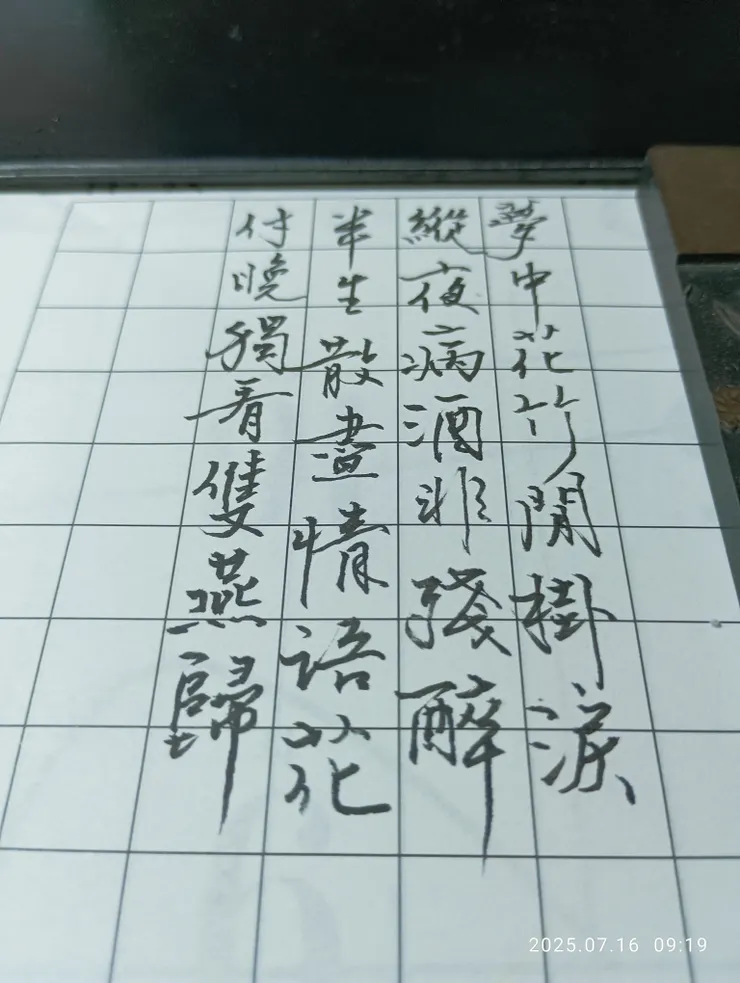 夢中花竹閒掛淚
縱夜病酒非殘醉
半生散盡情語花
付晚獨看雙燕歸
2025.07.16 09:19